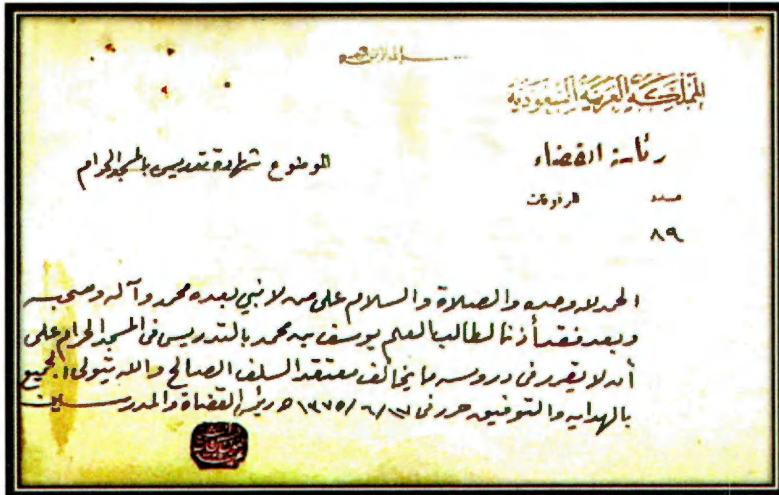 المملكة العربية السعودية
رئاسة القضاء
الموضوع شهادة تدريس بالمسجد الحرام
عدد المرفوعات
٨٩
الحمد لله وحده والصلاة والسلام على من لا نبي بعده محمد وآله وصحبه
وبعد فقد أذنا لطالب العلم يوسف بن محمد بالتدريس في المسجد الحرام على
أن لا يقرر في دروسه ما يخالف معتقد السلف الصالح والله يتولى الجميع
بالهدايه والتوفيق حرر في ١٣٧٥/٦/١٧ ه رئيس القضاة والمدرسين